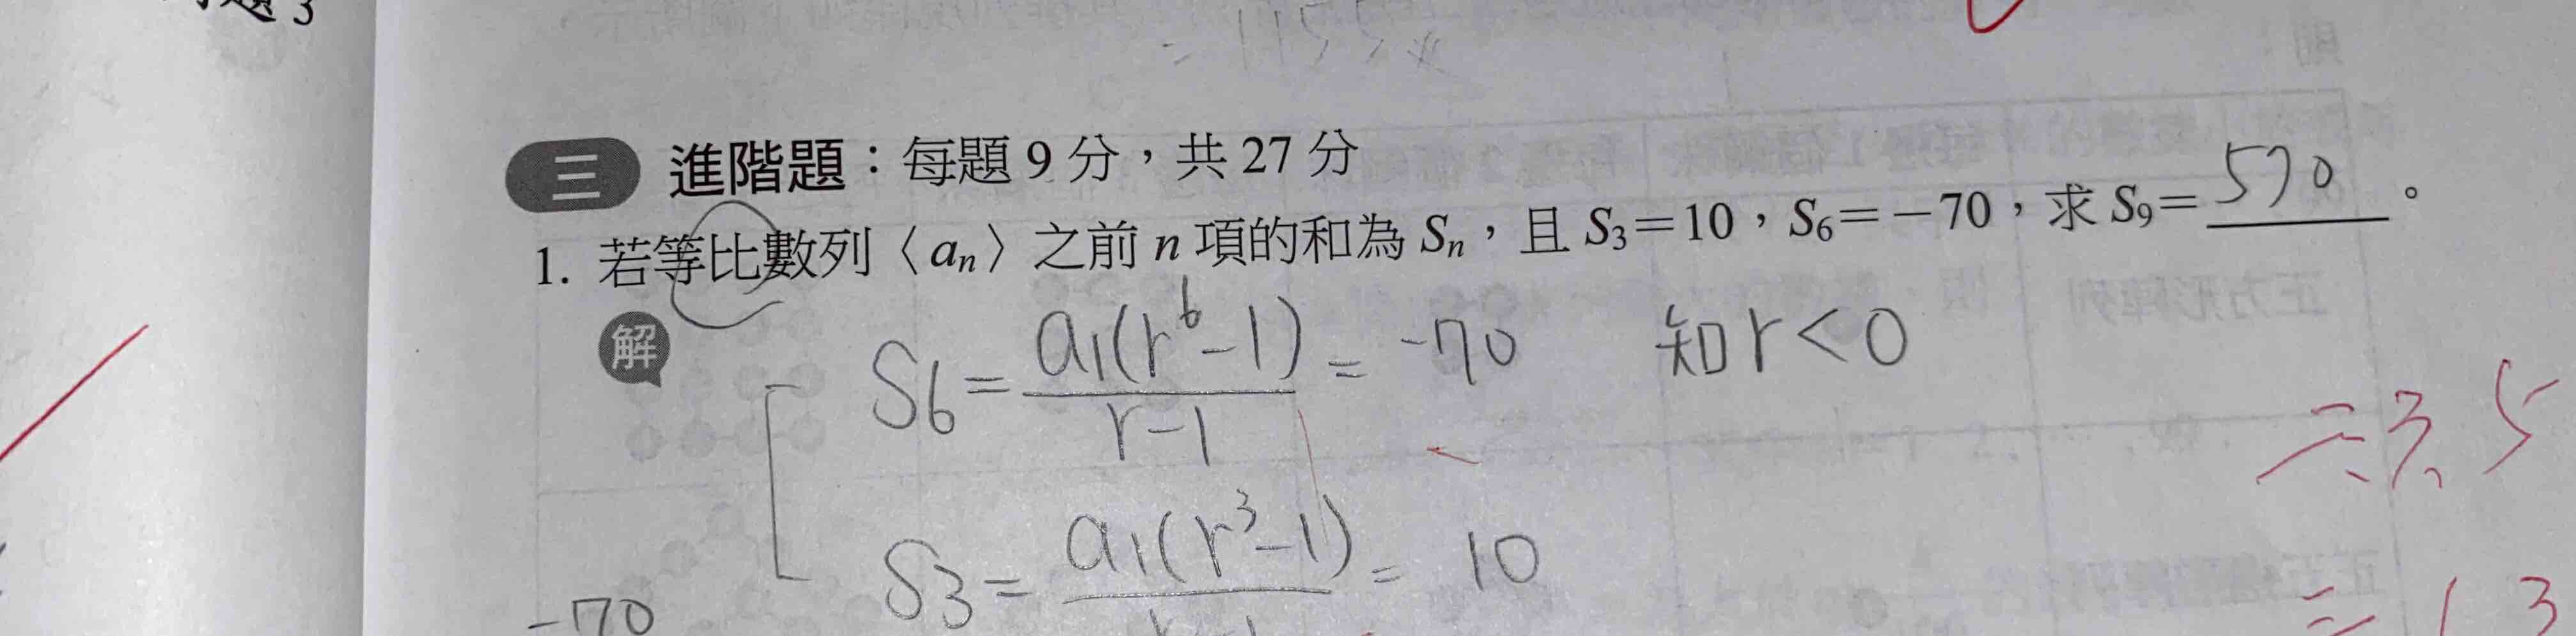 3
= 1155
三 進階題：每題 9 分，共 27 分
1. 若等比數列〈aₙ〉之前 n 項的和為 Sₙ，且 S₃＝10，S₆＝－70，求 S₉＝ 570 。
解
S6 = a1(r^6-1) / r-1 = -70 知 r < 0
S3 = a1(r^3-1) / r-1 = 10
-70
正方形陣列